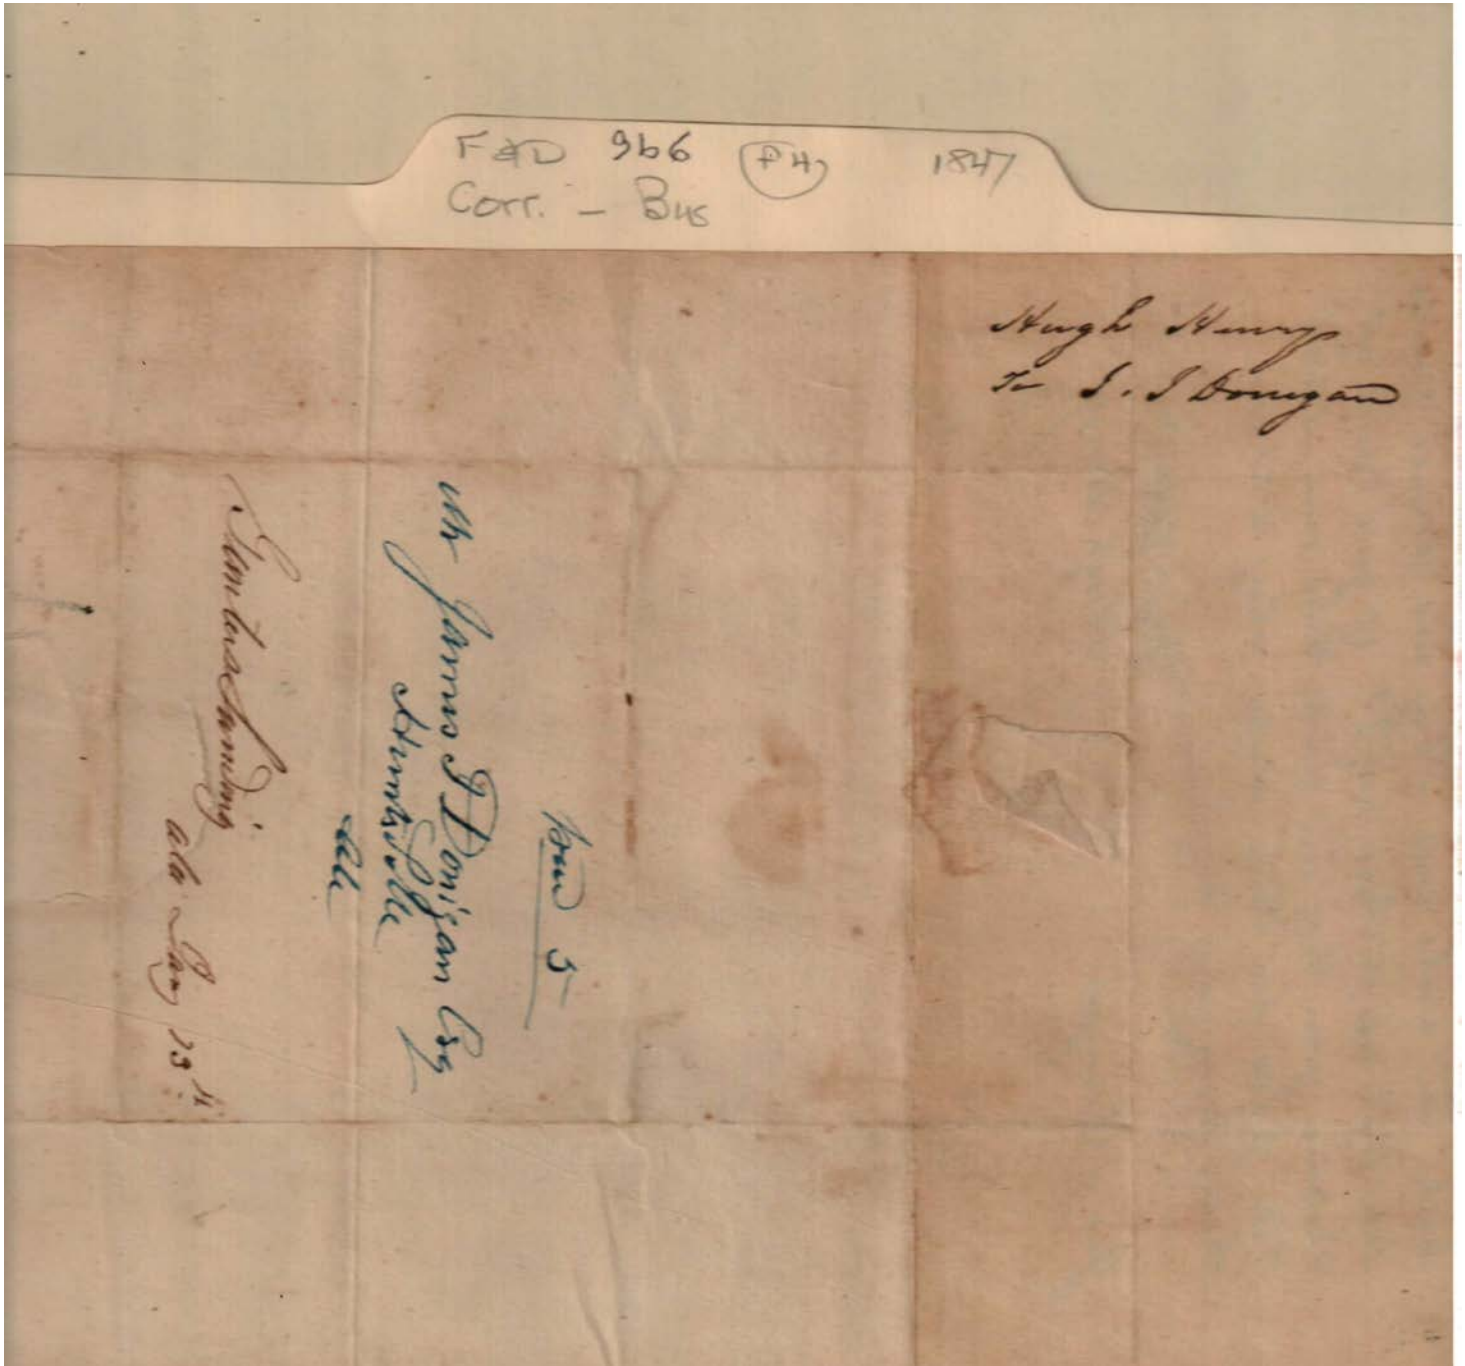 F&D 9b6 P4 1847
Corr. - Bus
Hugh Henry
To J. J Donegan
5
Mr James J Donigan Esq
Huntsville
Ala
Gunters Landing
ala Jany 13th